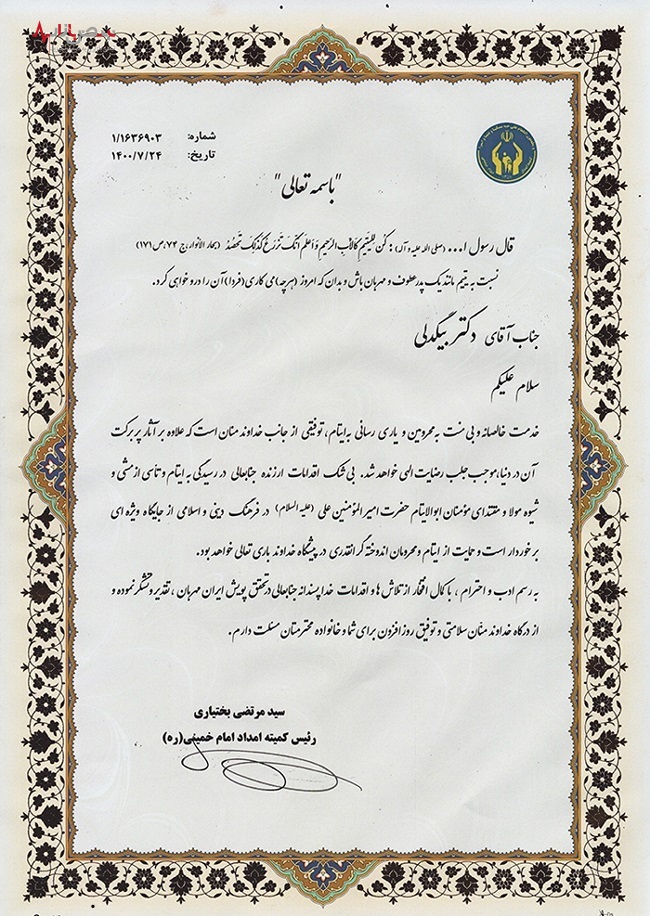 شماره: ۱/۱۶۳۶۹۰۳
تاریخ: ۱۴۰۰/۷/۲۴
"باسمه تعالی"
قال رسول ا... (صلی الله علیه و آله): کُن لِلیَتیمِ کَالأَبِ الرَّحیمِ وَ اعلَم اَنَّکَ تَزرَعُ کَذلِکَ تَحصُدُ (بحار الانوار، ج ۷۴، ص ۱۷۱)
نسبت به یتیم مانند یک پدر عطوف و مهربان باش و بدان که امروز (هرچه) می کاری (فردا) آن را درو خواهی کرد.
جناب آقای دکتر بیگدلی
سلام علیکم
خدمت خالصانه و بی منت به محرومین و یاری رسانی به ایتام، توفیقی از جانب خداوند منان است که علاوه بر آثار پر برکت
آن در دنیا، موجب جلب رضایت الهی خواهد شد. بی شک اقدامات ارزنده جنابعالی در رسیدگی به ایتام و تاسی از مشی و
شیوه مولا و مقتدای مؤمنان ابوالایتام حضرت امیرالمؤمنین علی (علیه السلام) در فرهنگ دینی و اسلامی از جایگاه ویژه ای
برخوردار است و حمایت از ایتام و محرومان اندوخته گرانقدری در پیشگاه خداوند باری تعالی خواهد بود.
به رسم ادب و احترام، با کمال افتخار از تلاش ها و اقدامات خداپسندانه جنابعالی در تحقق پویش ایران مهربان، تقدیر و تشکر نموده و
از درگاه خداوند منّان سلامتی و توفیق روز افزون برای شما و خانواده محترمتان مسئلت دارم.
سید مرتضی بختیاری
رئیس کمیته امداد امام خمینی(ره)